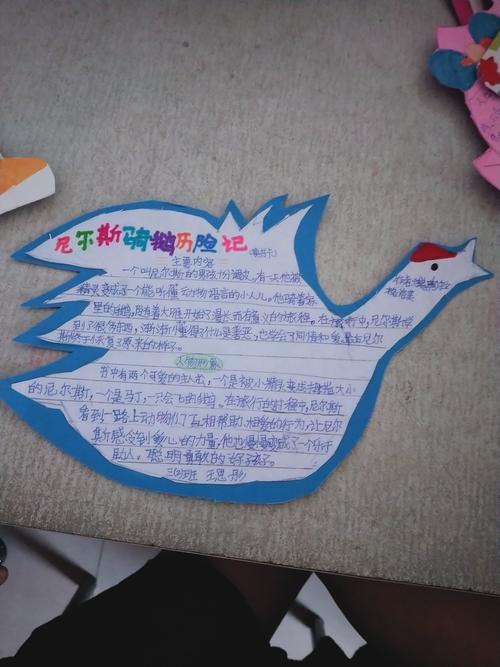 尼尔斯骑鹅历险记
主要内容
一个叫尼尔斯的男孩十分调皮,有一天他被
精灵变成了一个能听懂动物语言的小人儿。他骑着家
里的白鹅,跟着大雁开始了漫长而有意义的旅程。在旅行中,尼尔斯学
到了很多东西,逐渐懂得了什么是善恶,也学会了同情和爱,最后尼尔
斯终于恢复了原来的样子。
人物形象
书中有两个可爱的主人公,一个是被小精灵变成拇指大小
的尼尔斯,一个是马丁,一只会飞的白鹅。在旅行的过程中,尼尔斯
看到一路上动物们互相帮助、相爱的行为,让尼尔
斯感受到爱心的力量,他也慢慢变成了一个乐于
助人、聪明勇敢的好孩子。
王思彤